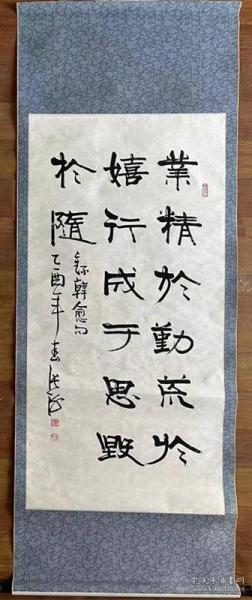 業精於勤荒於
嬉行成于思毀
於隨
錄韓愈句
乙酉年春
孔夫子旧书网